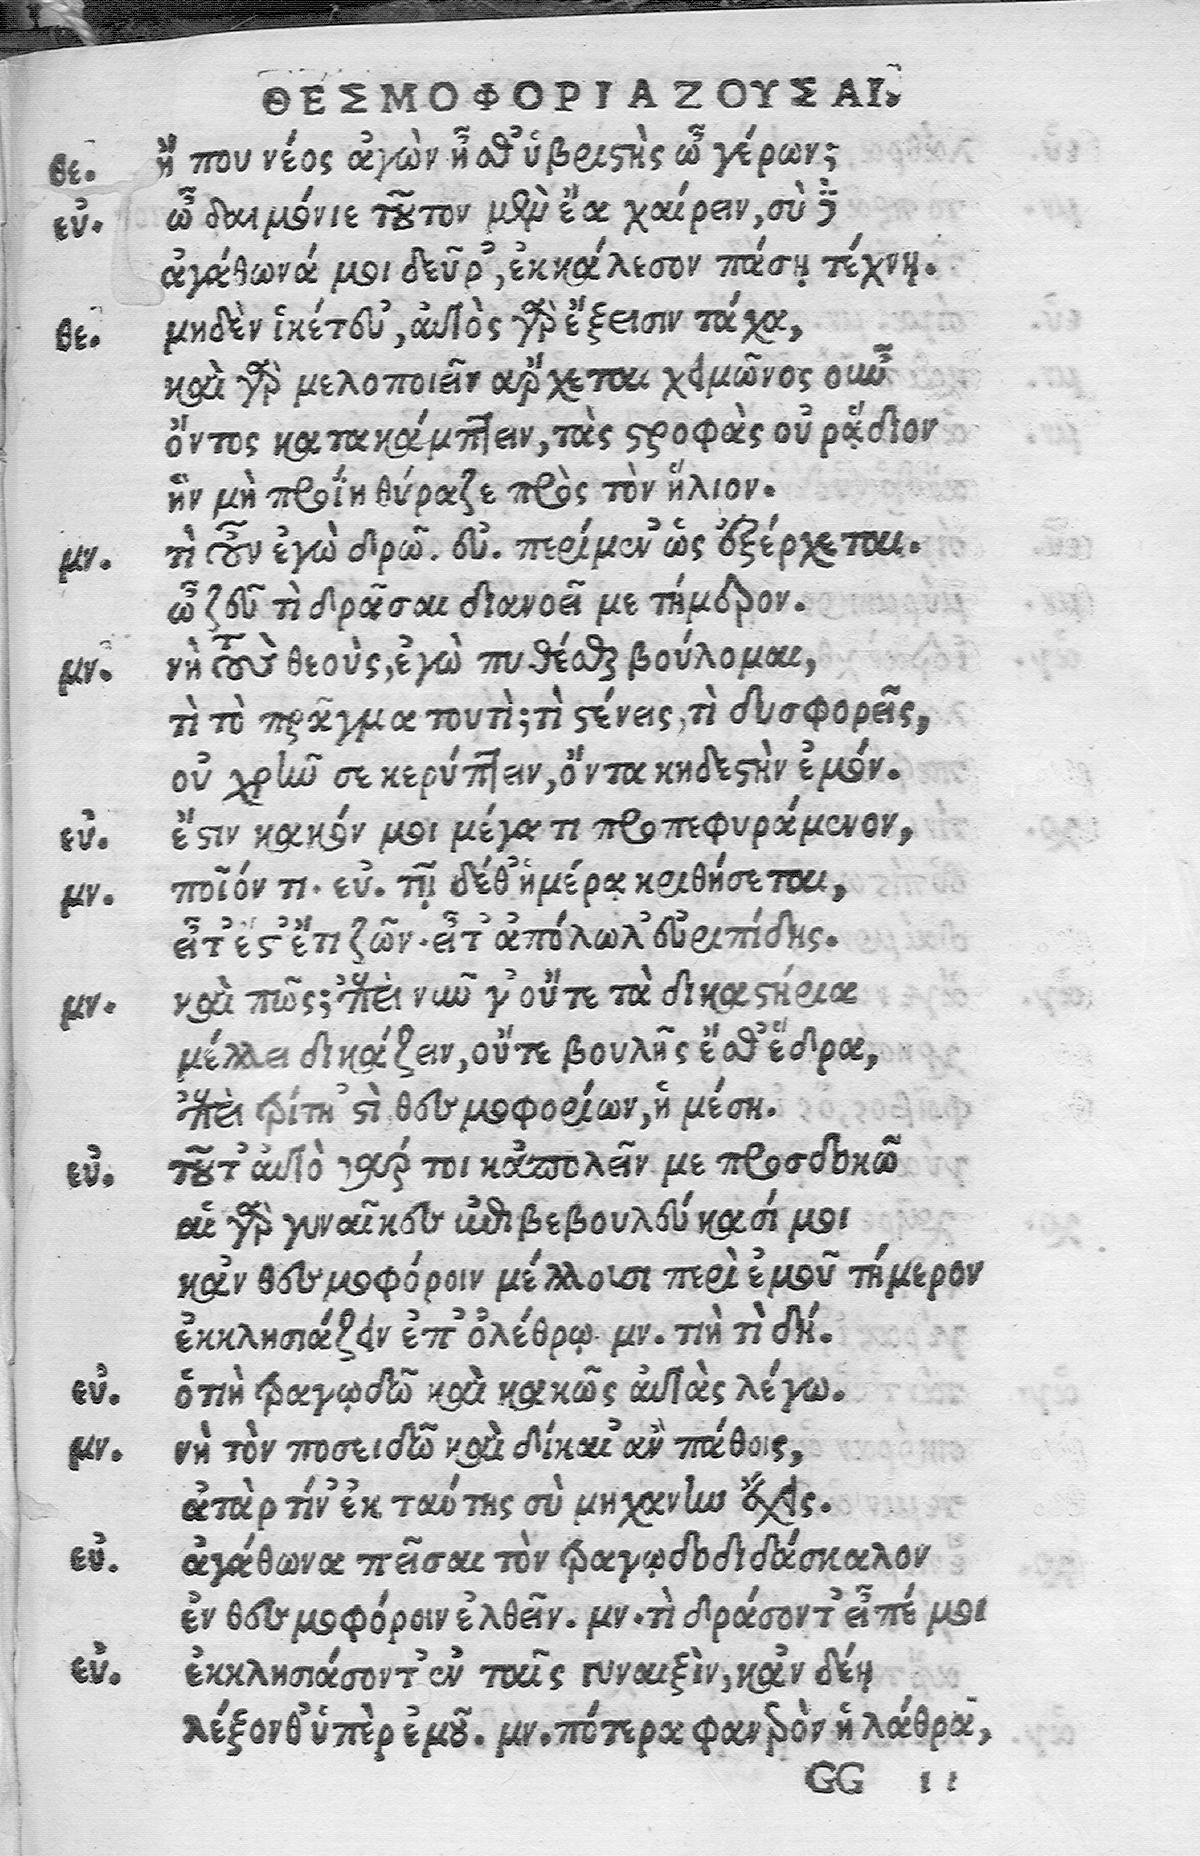 ΘΕΣΜΟΦΟΡΙΑΖΟΥΣΑΙ.
θε. ἤ που νέος ἀγὼν ἦσθ' ὑβριστὴς ὦ γέρων;
εὐ. ὦ δαιμόνιε τοῦτον μὲν ἔα χαίρειν, σὺ δὲ
ἀγάθωνά μοι δεῦρ', ἐκκάλεσον πάσῃ τέχνῃ.
θε. μηδὲν ἱκέτευ', αὐτὸς γὰρ ἔξεισιν τάχα,
καὶ γὰρ μελοποιεῖν ἄρχεται χειμῶνος οὖν
ὄντος κατακάμπτειν, τὰς στροφὰς οὐ ῥᾴδιον
ἢν μὴ προΐη θύραζε πρὸς τὸν ἥλιον.
μν. τὶ οὖν ἐγὼ δρῶ. εὐ. περίμεν' ὡς ἐξέρχεται.
ὦ ζεῦ τὶ δρᾶσαι διανοεῖ με τήμερον.
μν. νὴ τοὺς θεοὺς, ἐγὼ πυθέσθαι βούλομαι,
τὶ τὸ πρᾶγμα τουτὶ; τὶ στένεις, τὶ δυσφορεῖς,
οὐ χρῆν σε κερύπτειν, ὄντα κηδεστὴν ἐμόν.
εὐ. ἔστιν κακόν μοι μέγα τι προπεφυράμενον,
μν. ποῖόν τι. εὐ. τῇ δέθ' ἡμέρᾳ κριθήσεται,
εἶτ' ἔστ' ἔτι ζῶν. εἶτ' ἀπόλωλ' εὐριπίδης.
μν. καὶ πῶς; ἐπεὶ νῦν γ' οὔτε τὰ δικαστήρια
μέλλει δικάζειν, οὔτε βουλῆς ἔσθ' ἕδρα,
ἐπεὶ τρίτη 'στὶ θεσμοφορίων, ἡ μέση.
εὐ. τοῦτ' αὐτὸ γάρ τοι κἀπολεῖν με προσδοκῶ
αἱ γὰρ γυναῖκες ἐπιβεβουλεύκασί μοι
κἀν θεσμοφόροιν μέλλουσι περὶ ἐμοῦ τήμερον
ἐκκλησιάζειν ἐπ' ὀλέθρῳ. μν. τιὴ τὶ δή.
εὐ. ὁτιὴ τραγῳδῶ καὶ κακῶς αὐτὰς λέγω.
μν. νὴ τὸν ποσειδῶ καὶ δίκαι' ἂν πάθοις,
ἀτὰρ τίν' ἐκ ταύτης σὺ μηχανὴν ἔχεις.
εὐ. ἀγάθωνα πεῖσαι τὸν τραγῳδοδιδάσκαλον
ἐν θεσμοφόροιν ἐλθεῖν. μν. τὶ δράσοντ' εἶπέ μοι
εὐ. ἐκκλησιάσοντ' ἐν ταῖς γυναιξὶν, κἂν δέῃ
λέξονθ' ὑπὲρ ἐμοῦ. μν. πότερα φανερὸν ἢ λάθρᾳ,
GG ii